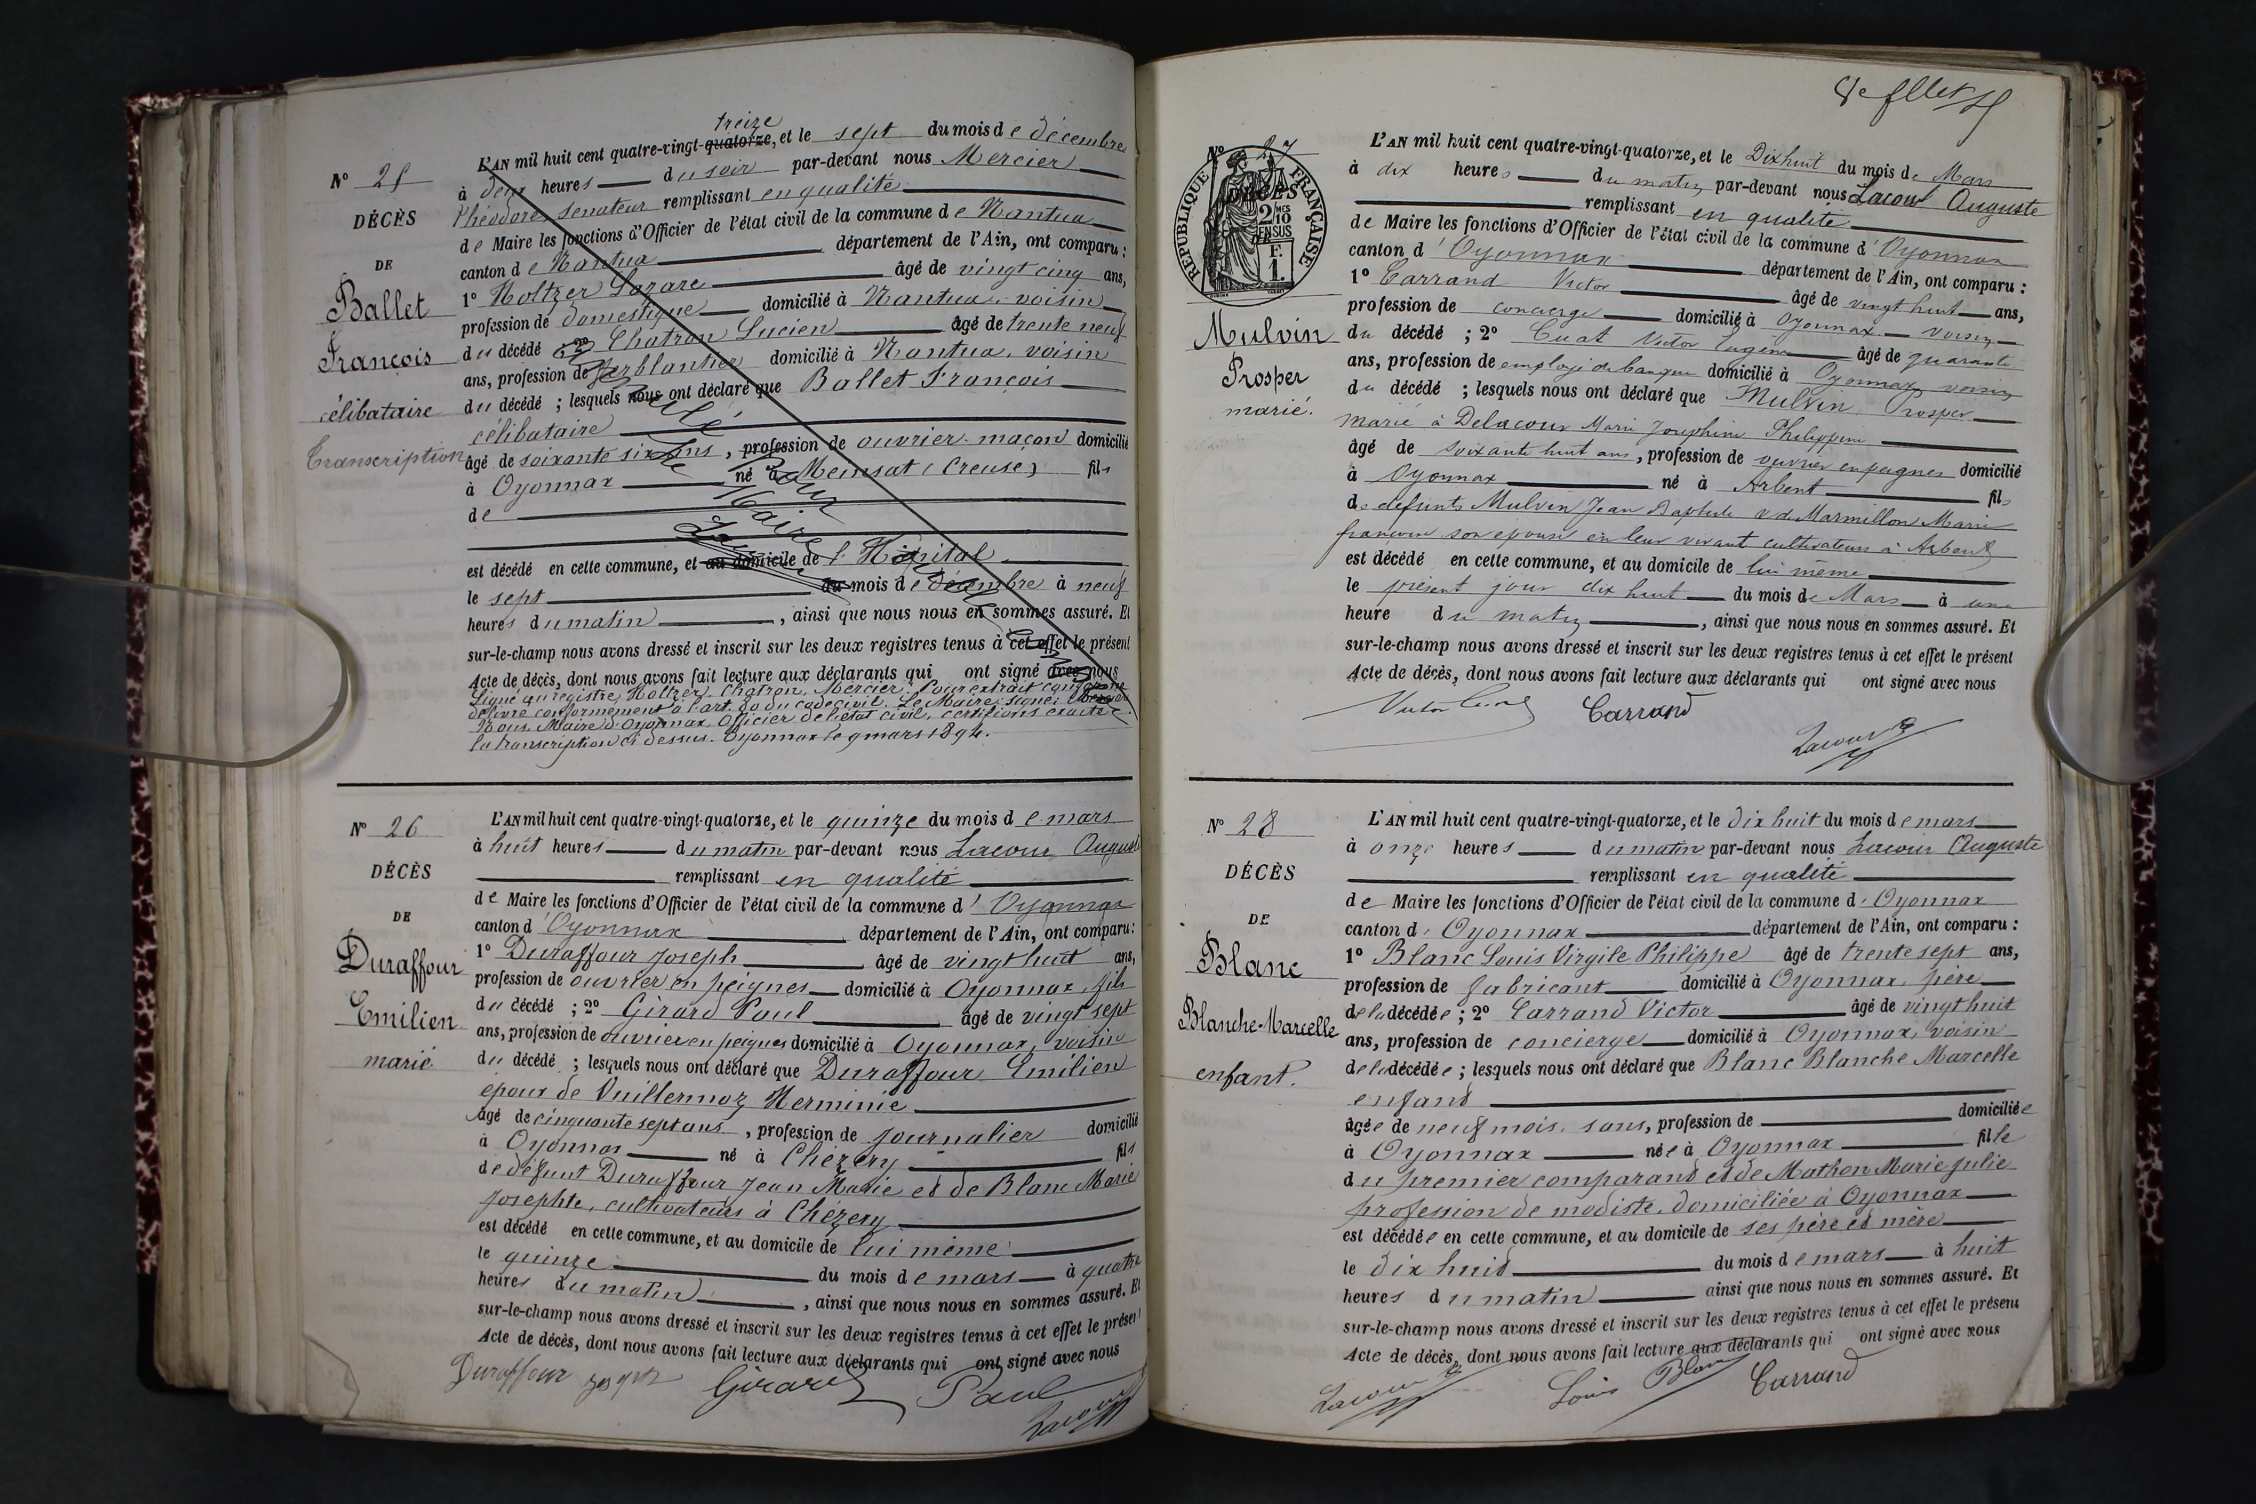 treize
L'AN mil huit cent quatre-vingt-quatorze, et le sept du mois de décembre
N° 25
à deux heures du soir par-devant nous Mercier
Théodore, senateur remplissant en qualité
DÉCÈS
de Maire les fonctions d'Officier de l'état civil de la commune de Nantua
canton de Nantua département de l'Ain, ont comparu :
DE
1° Holtzer Lazare âgé de vingt cinq ans,
Ballet
profession de domestique domicilié à Nantua, voisin
François
du décédé ; 2° Chatron Lucien âgé de trente neuf
ans, profession de ferblantier domicilié à Nantua, voisin
célibataire
du décédé ; lesquels nous ont déclaré que Ballet François
célibataire
Transcription
âgé de soixante six ans, profession de ouvrier-maçon domicilié
à Oyonnax né à Meinsat (Creuse) fils
de
est décédé en cette commune, et au domicile de l'Hôpital
le sept du mois de décembre à neuf
heures du matin, ainsi que nous nous en sommes assuré. Et
sur-le-champ nous avons dressé et inscrit sur les deux registres tenus à cet effet le présent
Acte de décès, dont nous avons fait lecture aux déclarants qui ont signé avec nous
Signé au registre, Holtzer, Chatron, Mercier. Pour extrait conforme
délivré conformément à l'art. 80 du code civil. Le Maire, signé: Mercier
Nous, Maire d'Oyonnax, Officier de l'état civil, certifions exacte
la transcription ci dessus. Oyonnax le 9 mars 1894.
L'AN mil huit cent quatre-vingt-quatorze, et le quinze du mois de mars
N° 26
à huit heures du matin par-devant nous Lacour Auguste
remplissant en qualité
DÉCÈS
de Maire les fonctions d'Officier de l'état civil de la commune d'Oyonnax
DE
canton d'Oyonnax département de l'Ain, ont comparu :
Duraffour
1° Duraffour Joseph âgé de vingt huit ans,
profession de ouvrier en peignes domicilié à Oyonnax, fils
Emilien
du décédé ; 2° Girard Paul âgé de vingt sept
ans, profession de ouvrier en peignes domicilié à Oyonnax, voisin
marié
du décédé ; lesquels nous ont déclaré que Duraffour Emilien
époux de Vuillermoz Herminie
âgé de cinquante sept ans, profession de journalier domicilié
à Oyonnax né à Chézery fils
de défunt Duraffour Jean Marie et de Blanc Marie
Josephte, cultivateurs à Chézery
est décédé en cette commune, et au domicile de lui même
le quinze du mois de mars à quatre
heures du matin, ainsi que nous nous en sommes assuré. Et
sur-le-champ nous avons dressé et inscrit sur les deux registres tenus à cet effet le présent
Acte de décès, dont nous avons fait lecture aux déclarants qui ont signé avec nous
Duraffour Joseph Girard Paul
Lacour
8e fllet
L'AN mil huit cent quatre-vingt-quatorze, et le Dix huit du mois de Mars
N° 27
à dix heures du matin par-devant nous Lacour Auguste
remplissant en qualité
DÉCÈS
RÉPUBLIQUE FRANÇAISE
2/10 MES EN SUS
F. 1.
de Maire les fonctions d'Officier de l'état civil de la commune d'Oyonnax
canton d'Oyonnax département de l'Ain, ont comparu :
1° Carrand Victor âgé de vingt huit ans,
profession de concierge domicilié à Oyonnax voisin
Mulvin
du décédé ; 2° Cuat Victor Eugène âgé de quarante
ans, profession de employé de banque domicilié à Oyonnax voisin
Prosper
du décédé ; lesquels nous ont déclaré que Mulvin Prosper
marié.
marié à Delacour Marie Josephine Philippine
âgé de soixante huit ans, profession de ouvrier en peignes domicilié
à Oyonnax né à Arbent fils
de défunts Mulvin Jean Baptiste & de Marmillon Marie
françoise son épouse en leur vivant cultivateurs à Arbent
est décédé en cette commune, et au domicile de lui même
le présent jour dix huit du mois de Mars à une
heure du matin, ainsi que nous nous en sommes assuré. Et
sur-le-champ nous avons dressé et inscrit sur les deux registres tenus à cet effet le présent
Acte de décès, dont nous avons fait lecture aux déclarants qui ont signé avec nous
Victor Cuat Carrand
Lacour
L'AN mil huit cent quatre-vingt-quatorze, et le dix huit du mois de mars
N° 28
à onze heures du matin par-devant nous Lacour Auguste
remplissant en qualité
DÉCÈS
de Maire les fonctions d'Officier de l'état civil de la commune d'Oyonnax
DE
canton d'Oyonnax département de l'Ain, ont comparu :
Blanc
1° Blanc Louis Virgile Philippe âgé de trente sept ans,
profession de fabricant domicilié à Oyonnax, père
Blanche-Marcelle
de la décédée ; 2° Carrand Victor âgé de vingt huit
ans, profession de concierge domicilié à Oyonnax, voisin
enfant.
de la décédée ; lesquels nous ont déclaré que Blanc Blanche Marcelle
enfant
âgée de neuf mois, sans, profession de domiciliée
à Oyonnax née à Oyonnax fille
du premier comparant et de Mathon Marie Julie
profession de modiste, domiciliée à Oyonnax
est décédée en cette commune, et au domicile de ses père et mère
le dix huit du mois de mars à huit
heures du matin ainsi que nous nous en sommes assuré. Et
sur-le-champ nous avons dressé et inscrit sur les deux registres tenus à cet effet le présent
Acte de décès, dont nous avons fait lecture aux déclarants qui ont signé avec nous
Lacour Louis Blanc Carrand